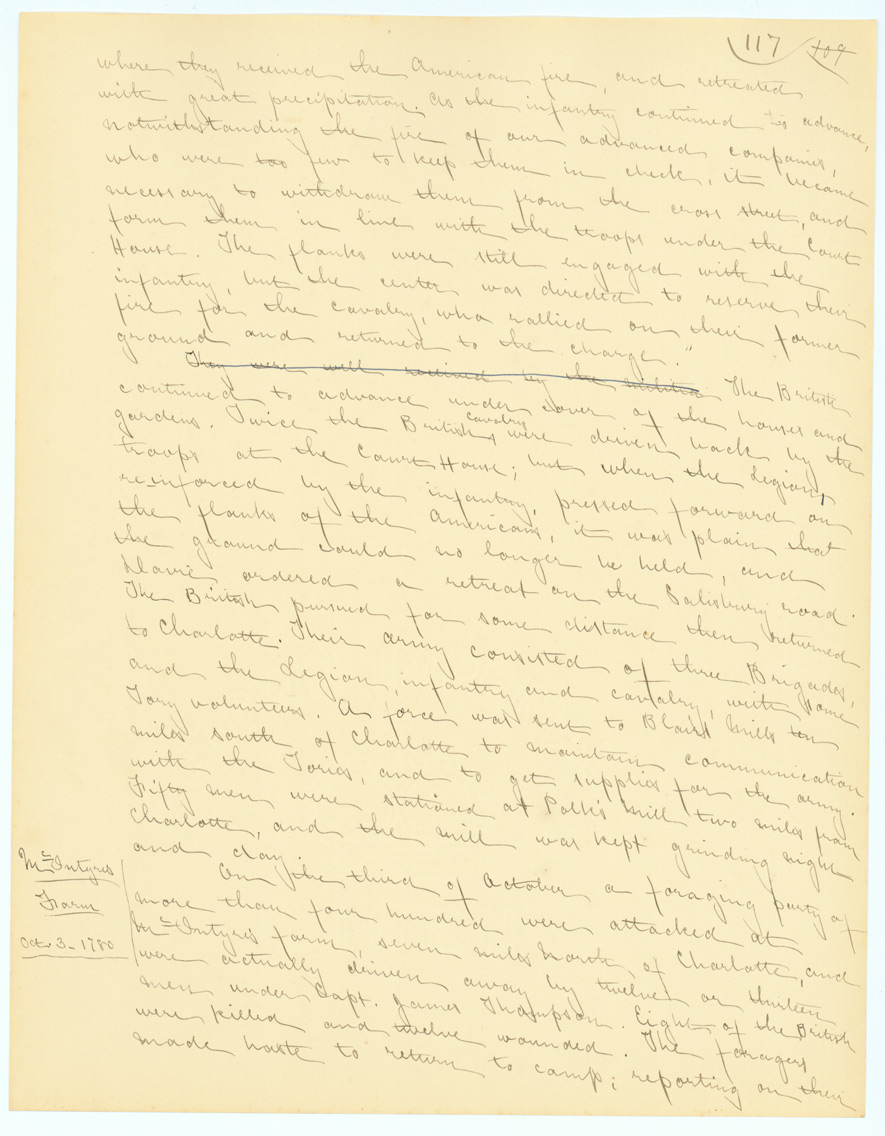 117 109
where they received the American fire, and retreated
with great precipitation. As the infantry continued to advance,
notwithstanding the fire of our advanced companies,
who were too few to keep them in check, it became
necessary to withdraw them from the cross street, and
form them in line with the troops under the Court
House. The flanks were still engaged with the
infantry, but the center was directed to reserve their
fire for the cavalry, who rallied on their former
ground and returned to the charge."
They were well received by the militia The British
continued to advance under cover of the houses and
gardens. Twice the British cavalry were driven back by the
troops at the Court House; but when the Legion,
reinforced by the infantry, pressed forward on
the flanks of the Americans, it was plain that
the ground could no longer be held, and
Davie ordered a retreat on the Salisbury road.
The British pursued for some distance then returned
to Charlotte. Their army consisted of three Brigades,
and the Legion, infantry and cavalry, with some
Tory volunteers. A force was sent to Blairs Mills ten
miles south of Charlotte to maintain communication
with the Tories, and to get supplies for the army.
Fifty men were stationed at Polk's Mill two miles from
Charlotte, and the mill was kept grinding night
and day.
McIntyres
Farm
Oct. 3- 1780
On the third of October a foraging party of
more than four hundred were attacked at
McIntyres farm, seven miles North of Charlotte, and
were actually driven away by twelve or thirteen
men under Capt. James Thompson. Eight of the British
were killed and twelve wounded. The foragers
made haste to return to camp; reporting on their